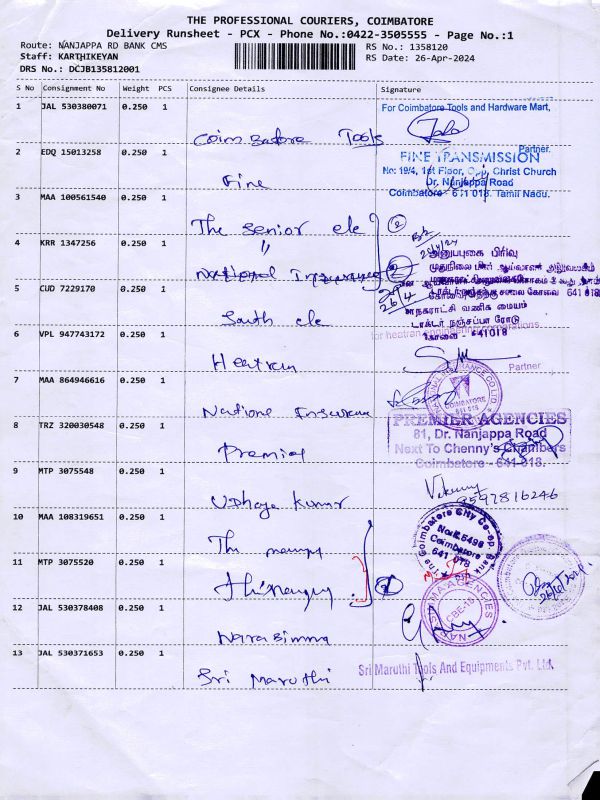 THE PROFESSIONAL COURIERS, COIMBATORE
Delivery Runsheet - PCX - Phone No.:0422-3505555 - Page No.:1
Route: NANJAPPA RD BANK CMS
RS No.: 1358120
Staff: KARTHIKEYAN
RS Date: 26-Apr-2024
DRS No.: DCJB135812001
S No Consignment No Weight PCS Consignee Details Signature
1 JAL 530380071 0.250 1
For Coimbatore Tools and Hardware Mart,
Coimbatore Tools
Partner.
2 EDQ 15013258 0.250 1
FINE TRANSMISSION
No: 19/4, 1st Floor, Christ Church
Fine
Dr. Nanjappa Road
Coimbatore - 641 018. Tamil Nadu.
3 MAA 100561540 0.250 1
The Senior ele
4 KRR 1347256 0.250 1
"
அனுப்புகை பிரிவு
National Insurance
5 CUD 7229170 0.250 1
26/4
வணிக மையம்
South ele
டாக்டர் நஞ்சப்பா ரோடு
கோவை - 641018
6 VPL 947743172 0.250 1
for heatran engineering corporations
Heatran
Partner
7 MAA 864946616 0.250 1
COIMBATORE
641 018
PREMIER AGENCIES
8 TRZ 320030548 0.250 1
81, Dr. Nanjappa Road
Next To Chenny's Chambers
Premier
Coimbatore - 641 018.
9 MTP 3075548 0.250 1
Udhaya Kumar
9597816246
10 MAA 108319651 0.250 1
The Coimbatore City Co-op Bank
Coimbatore
641 018
The
11 MTP 3075520 0.250 1
12 JAL 530378408 0.250 1
NARASIMMA AGENCIES
CBE-18
Narasimma
13 JAL 530371653 0.250 1
Sri Maruthi Tools And Equipments Pvt. Ltd.
Sri Maruthi